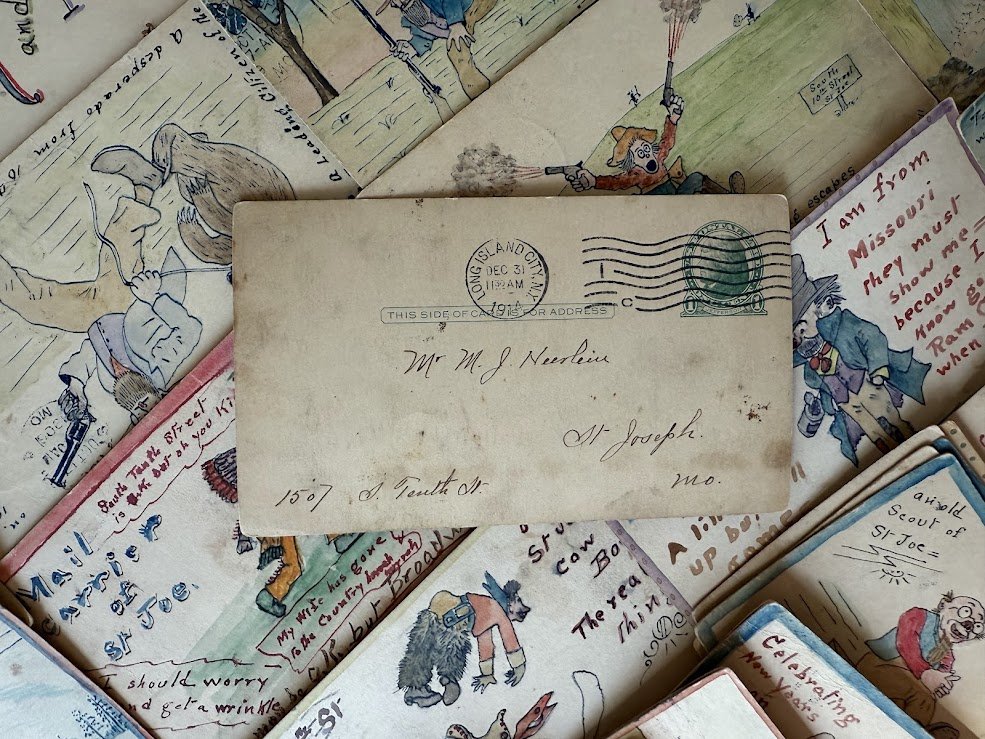 and
A desperado from
a Leading Citizen of the
South
10th Street
St Joe
Mo.
escapes
LONG ISLAND CITY, N.Y.
DEC 31
11 32 AM
1914
1
C
THIS SIDE OF CARD IS FOR ADDRESS
Mr M. J. Neerlein
St Joseph.
1507 S. Tenth St.
Mo.
I am from
Missouri
they must
show me=
because I
Know
Ram
when
South Tenth Street
is O.K. but oh you Ki
Mail
Carrier
of
St Joe.
My Wife has gone
To the Country hoorah
but Broadw
I should worry
and get a wrinkle
St
Cow Bo
Therea
Thin
A
up
an old
Scout of
St Joe=
Celebrating
New Years
St